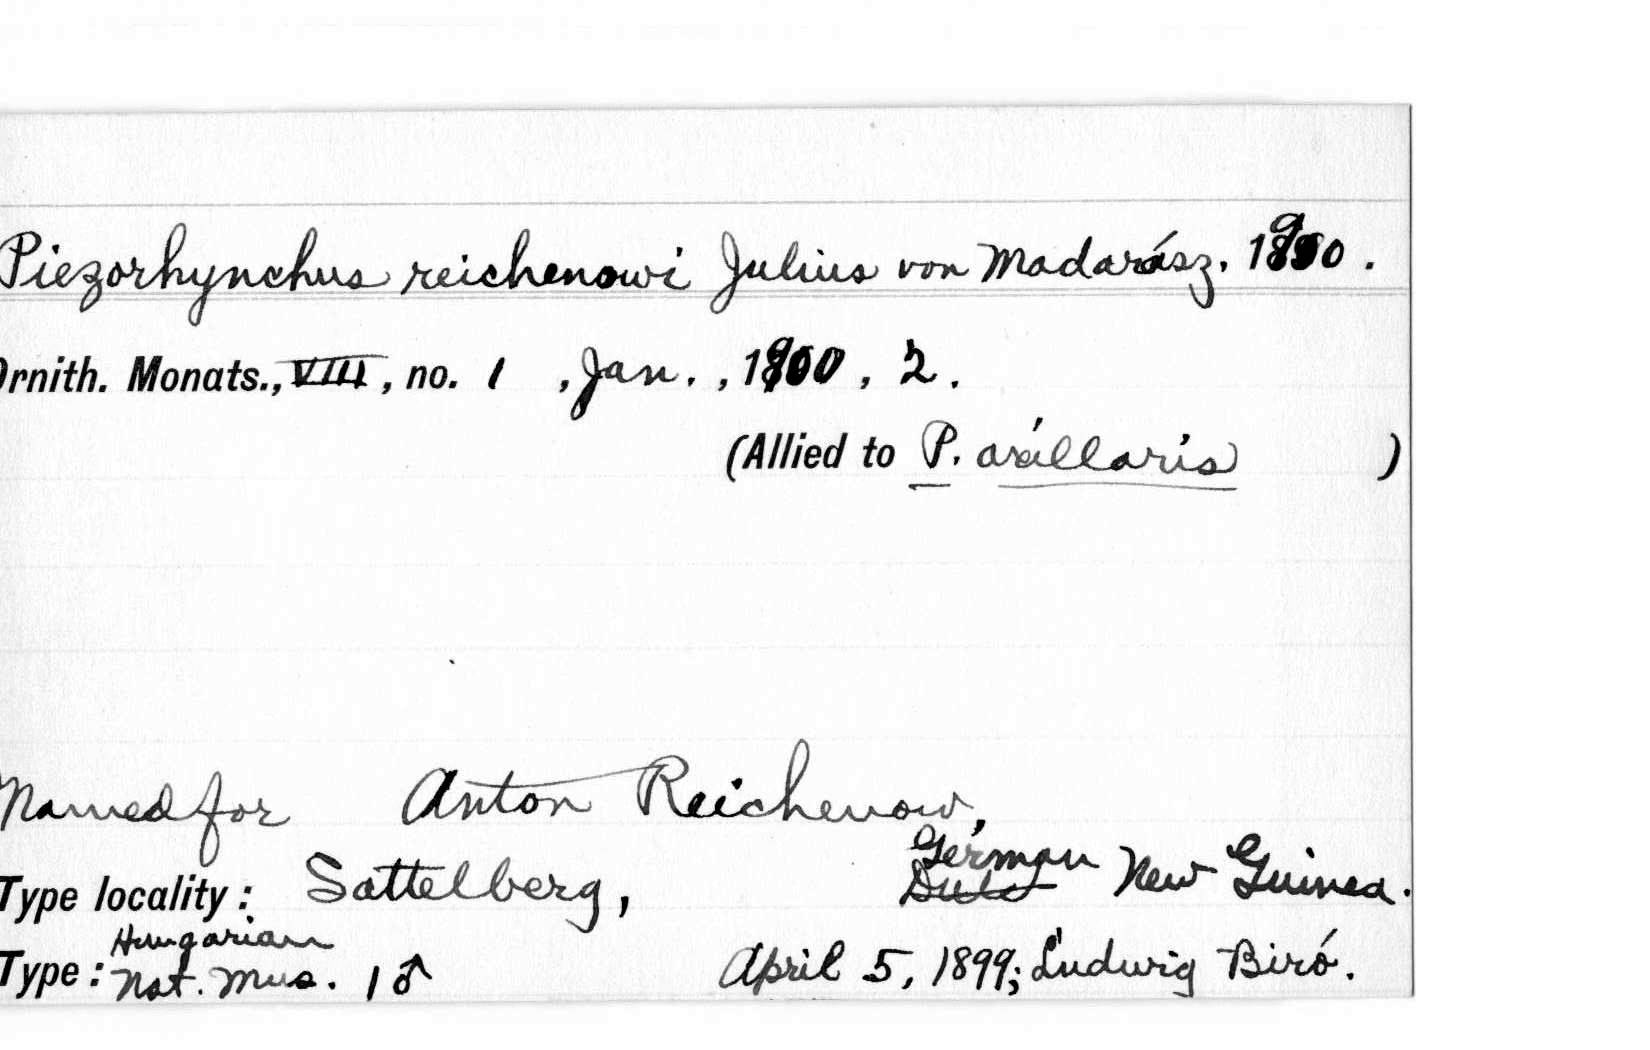 Piezorhynchus reichenowi Julius von Madarász. 1900.
Ornith. Monats., VIII, no. 1, Jan., 1900, 2.
(Allied to P. axillaris)
Named for Anton Reichenow,
German
Type locality: Sattelberg, Dutc New Guinea.
Hungarian
Type: Nat. Mus. 1♂ April 5, 1899; Ludwig Biró.